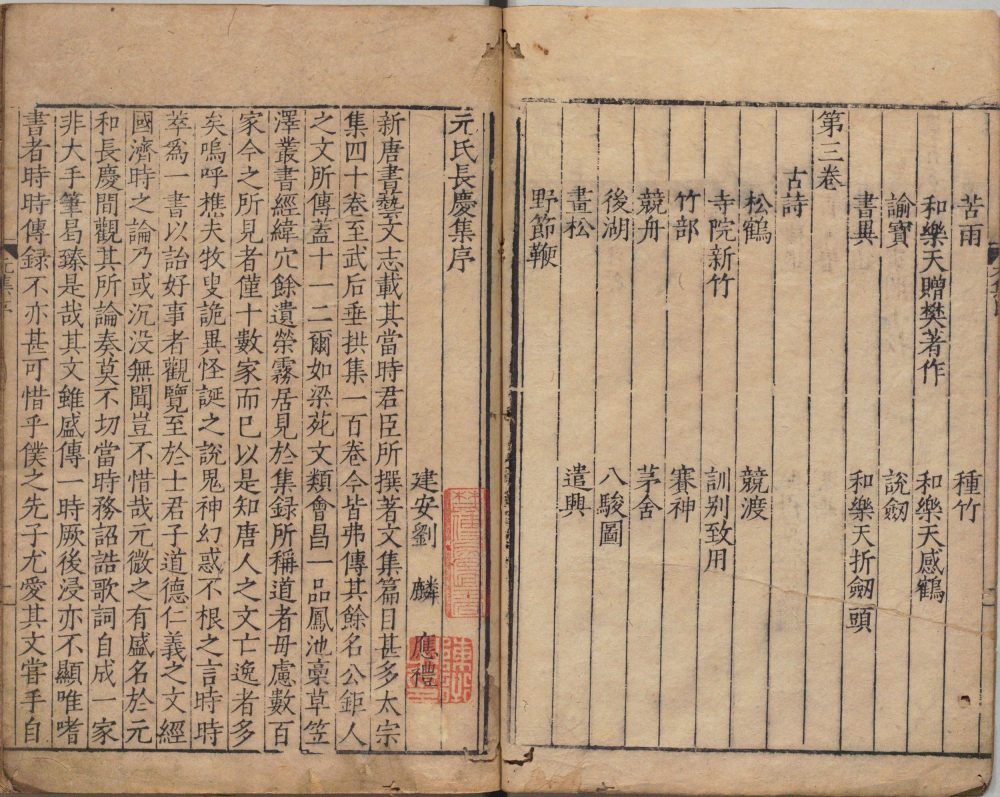 苦雨　種竹
和樂天贈樊著作　和樂天感鶴
諭寶　說劒
書異　和樂天折劒頭
第三卷
古詩
松鶴　競渡
寺院新竹　訓別致用
竹部　賽神
競舟　茅舍
後湖　八駿圖
畫松　遣興
野節鞭
元氏長慶集序
建安劉　麟　應禮
新唐書藝文志載其當時君臣所撰著文集篇目甚多太宗
集四十卷至武后垂拱集一百卷今皆弗傳其餘名公鉅人
之文所傳蓋十一二爾如梁苑文類會昌一品鳳池藁草笠
澤叢書經緯穴餘遺榮霧居見於集録所稱道者毋慮數百
家今之所見者僅十數家而已以是知唐人之文亡逸者多
矣嗚呼樵夫牧叟詭異怪誕之說鬼神幻惑不根之言時時
萃爲一書以詒好事者觀覽至於士君子道德仁義之文經
國濟時之論乃或沉没無聞豈不惜哉元微之有盛名於元
和長慶間觀其所論奏莫不切當時務詔誥歌詞自成一家
非大手筆曷臻是哉其文雖盛傳一時厥後浸亦不顯唯嗜
書者時時傳録不亦甚可惜乎僕之先子尤愛其文嘗手自